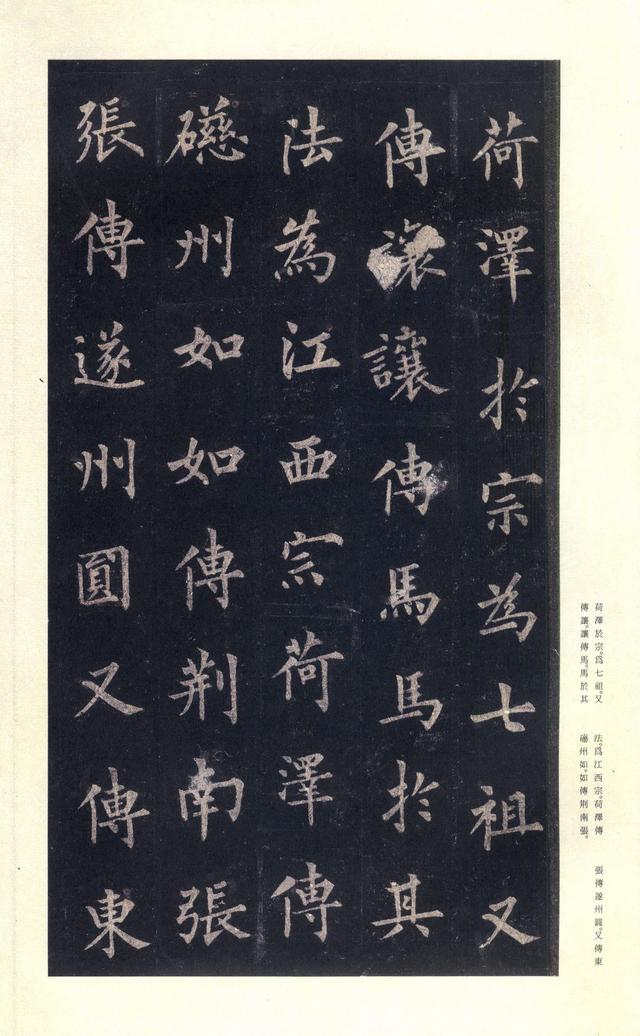 荷澤於宗為七祖又
傳讓讓傳馬馬於其
法為江西宗荷澤傳
礠州如如傳荆南張
張傳遂州圓又傳東
荷澤於宗。爲七祖。又
傳讓。讓傳馬。馬於其
法。爲江西宗。荷澤傳
磁州如。如傳荆南張。
張傳遂州圓。又傳東